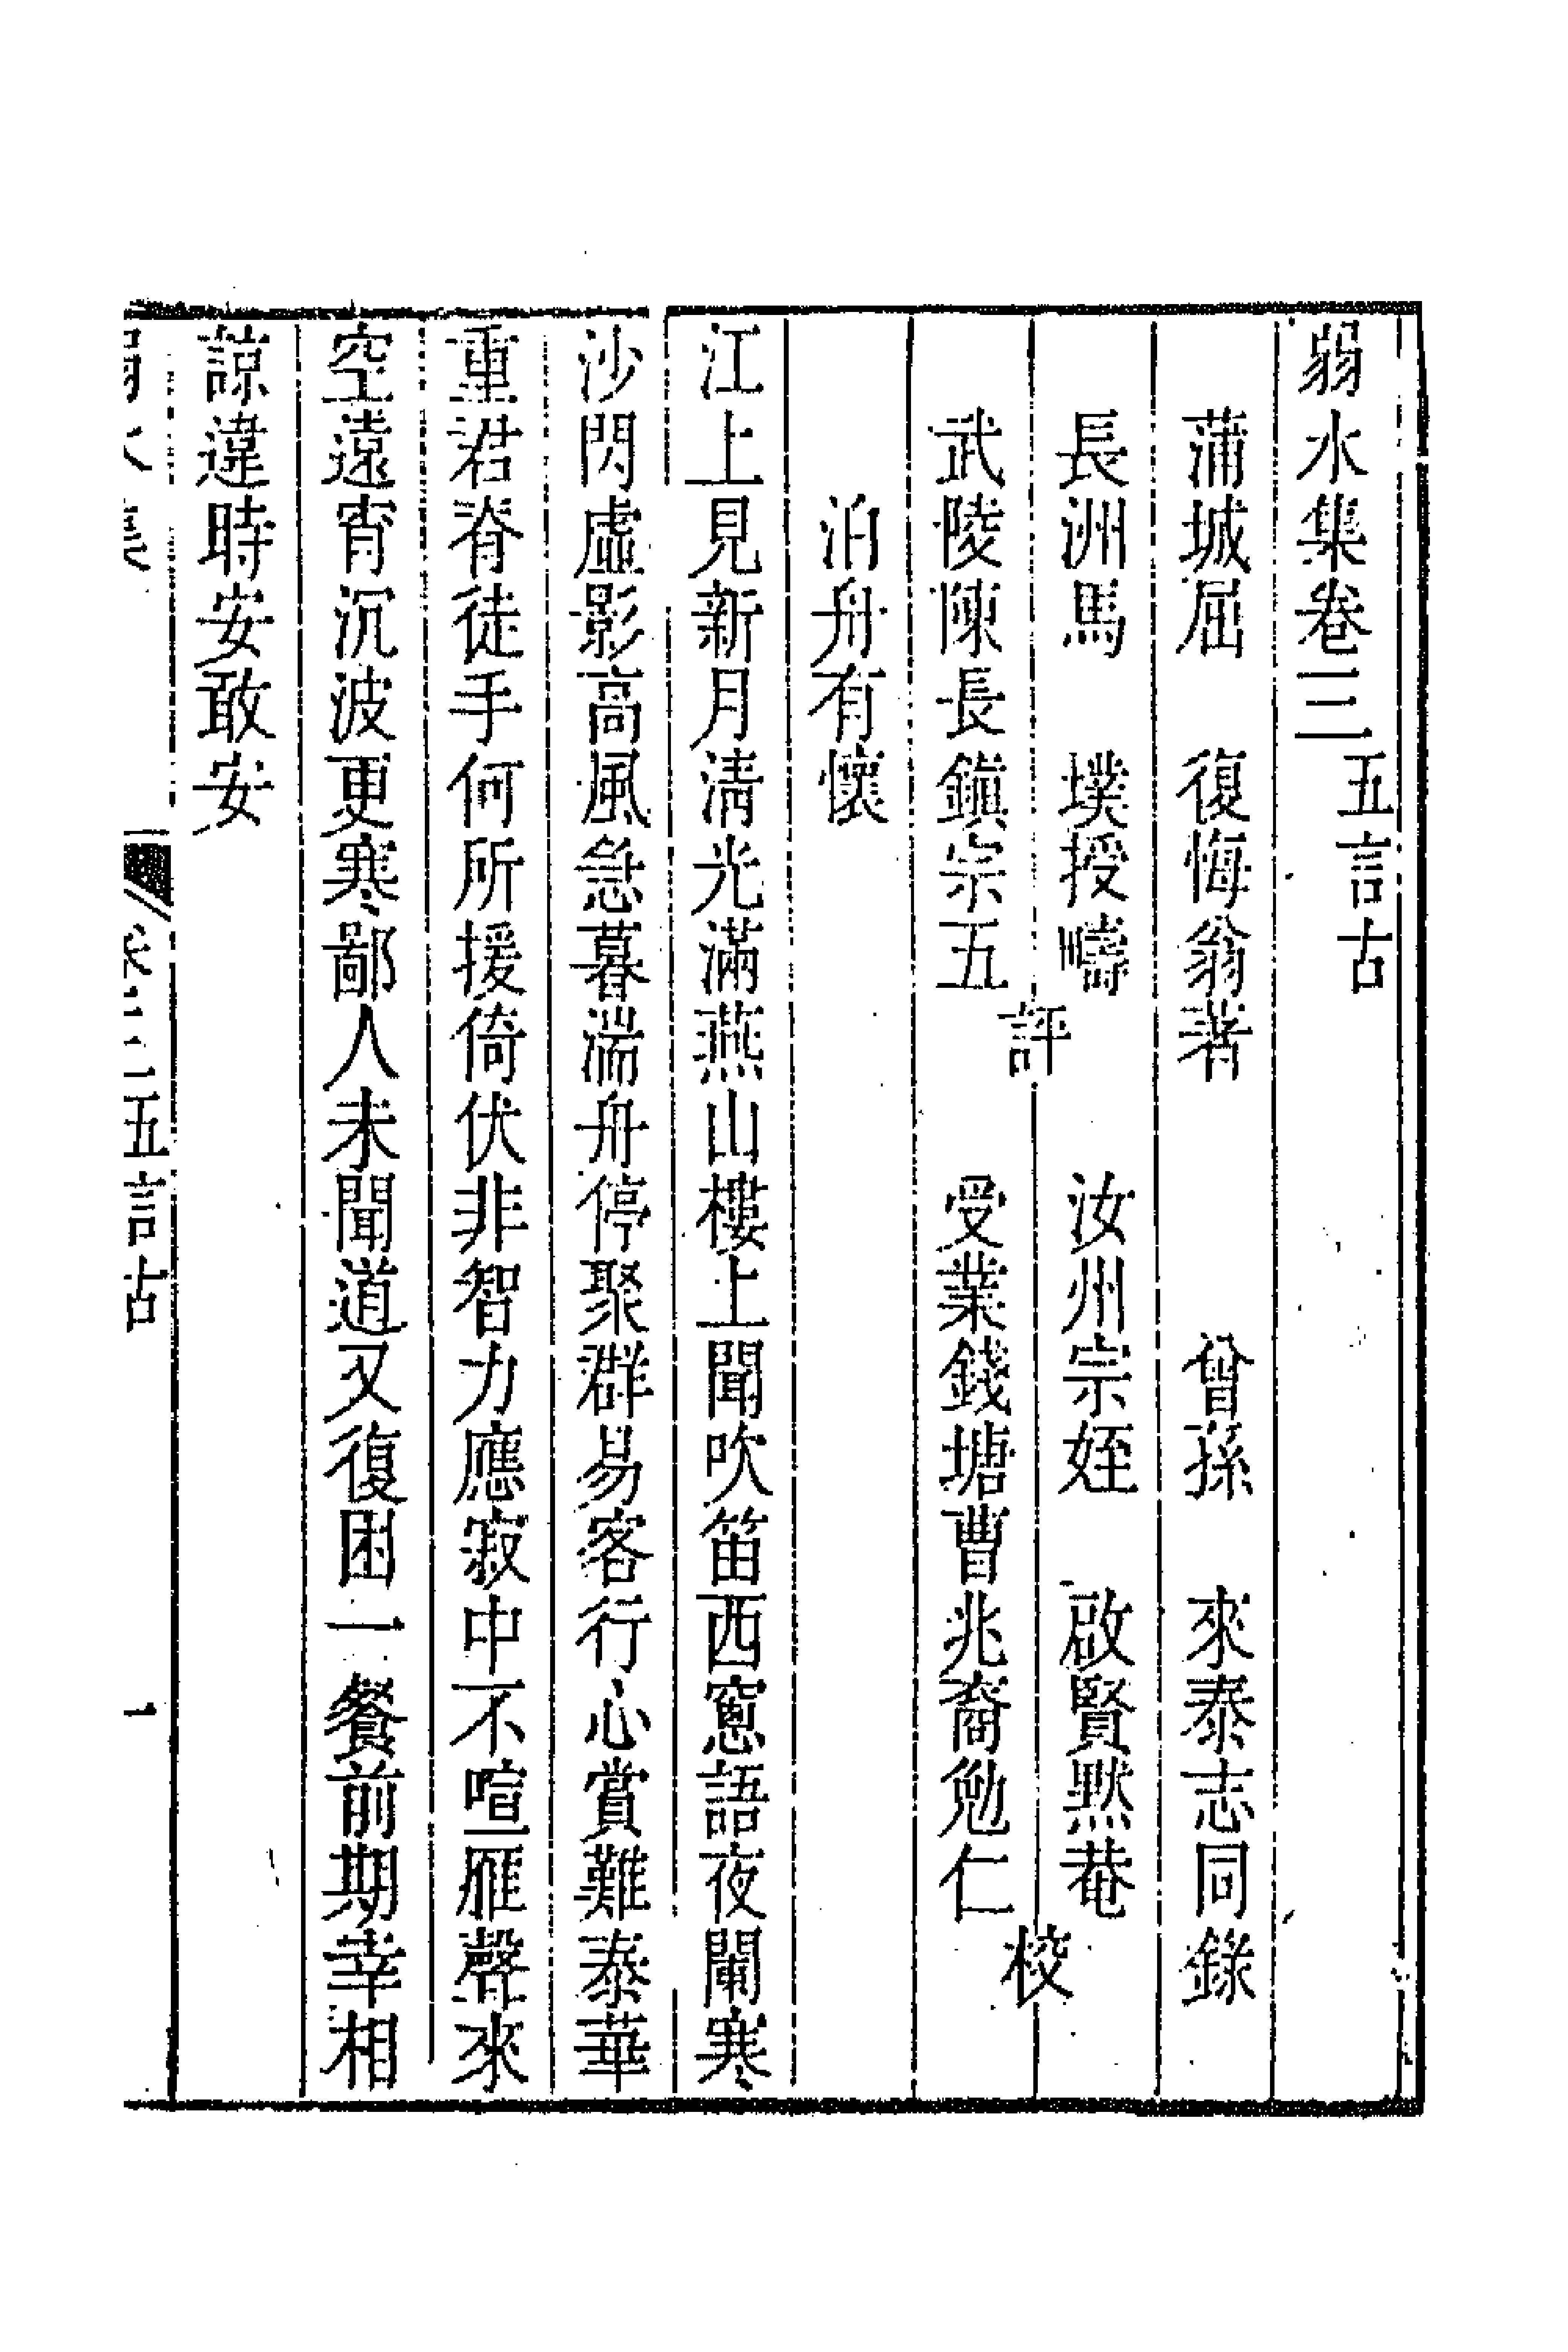 弱水集卷三 五言古
蒲城屈 復悔翁著 曾孫 來泰志同錄
長洲馬 墣授疇 汝州宗姪 啟賢默菴
評 校
武陵陳長鎭宗五 受業錢塘曹兆裔勉仁
泊舟有懷
江上見新月清光滿燕山樓上聞吹笛西窻語夜闌寒
沙閃虛影高風急暮湍舟停聚群易客行心賞難泰華
重君脊徒手何所援倚伏非智力應寂中不喧雁聲來
空遠宵沉波更寒鄙人未聞道又復困一餐前期幸相
諒違時安敢安
弱水集 卷三 五言古 一